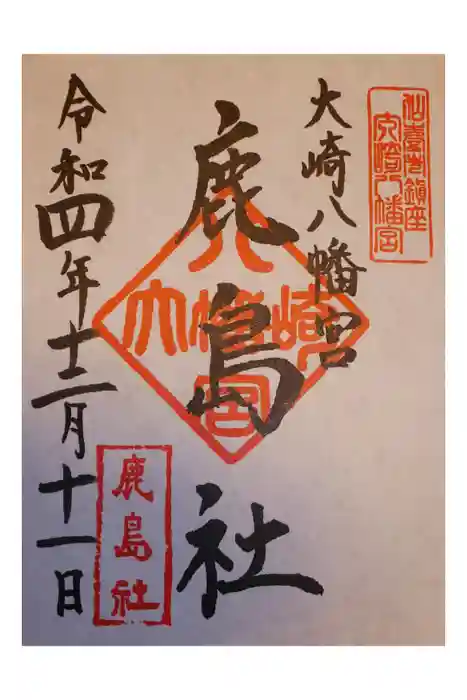 大崎八幡宮
大崎八幡宮
鹿島社
大崎八幡宮
令和四年十二月十一日
鹿島社